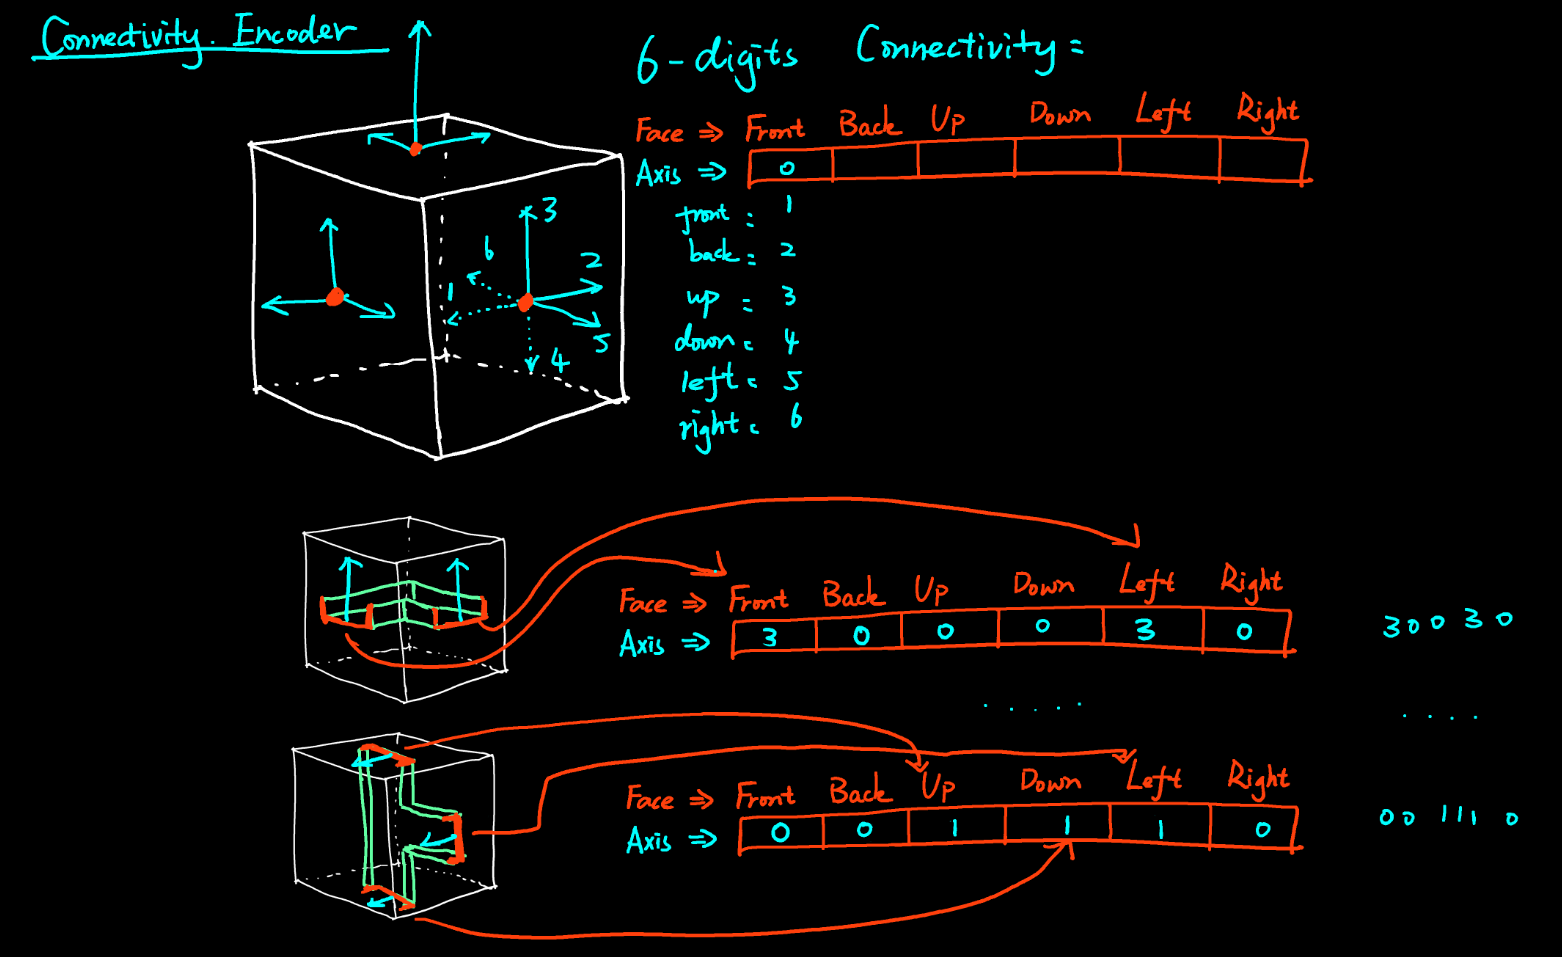 Connectivity. Encoder
6-digits Connectivity =
Face ⇒ Front Back Up Down Left Right
Axis ⇒ 0
front = 1
back = 2
up = 3
down = 4
left = 5
right = 6
3
2
6
1
5
4
Face ⇒ Front Back Up Down Left Right
Axis ⇒ 3 0 0 0 3 0
3 0 0 3 0
. . . . .
. . . .
Face ⇒ Front Back Up Down Left Right
Axis ⇒ 0 0 1 1 1 0
0 0 1 1 1 0